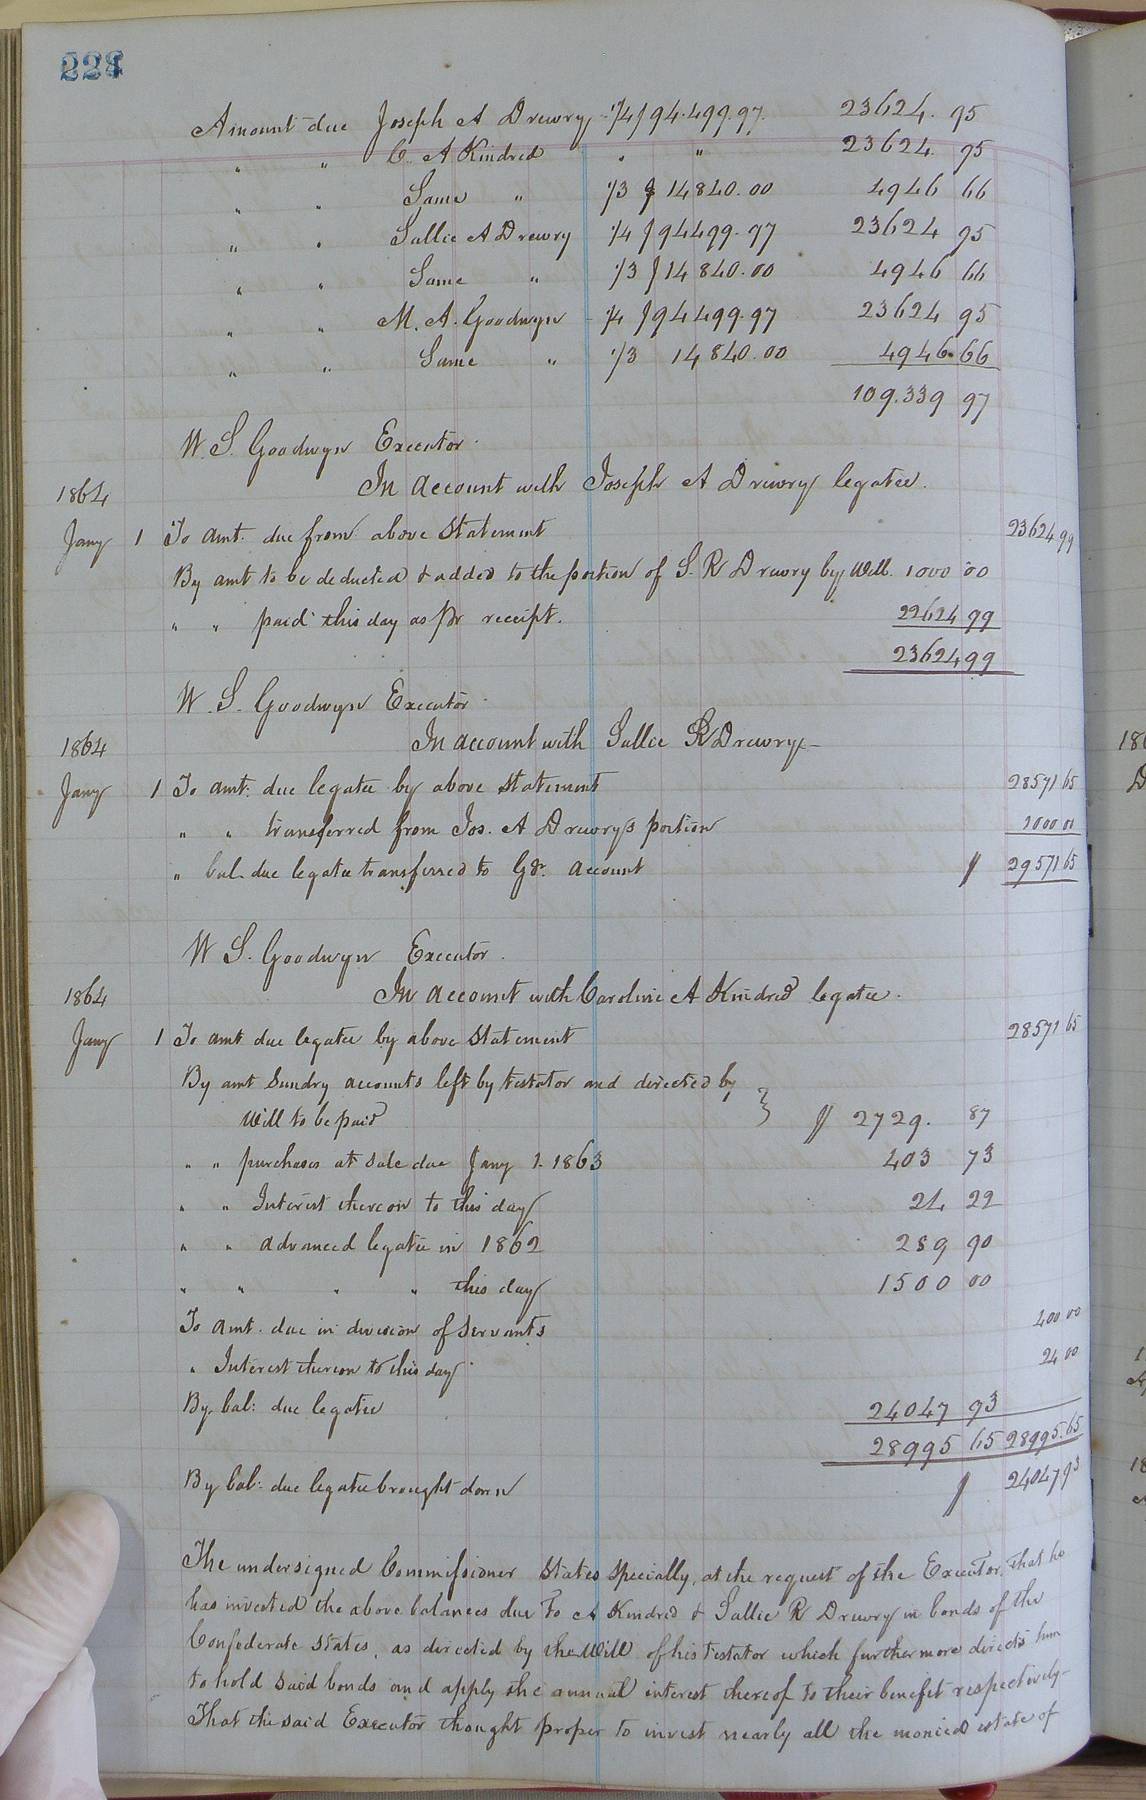 228
Amount due Joseph A Drewry 1/4 $94.499.97. 23624. 95
" " C. A Kindred " " 23624. 95
" " Same " 1/3 $ 14840.00 4946 66
" " Sallie A Drewry 1/4 $94499.97 23624 95
" " Same " 1/3 $14840.00 4946 66
" " M. A. Goodwyn - 1/4 $94499.97 23624 95
" " Same " 1/3 14840.00 4946.66
109.339 97
W. S. Goodwyn Executor.
In account with Joseph A Drewry legatee.
1864
Jany 1 To amt. due from above statement 23624.99
By amt to be deducted & added to the portion of S. R Drewry by Will. 1000 00
" " paid this day as pr receipt. 22624 99
23624 99
W. S. Goodwyn Executor.
In account with Sallie R Drewry-
1864
Jany 1 To amt. due legatee by above statement 28571 65
" " transferred from Jos. A Drewry's portion 1000 00
" bal due legatee transferred to Gdr. account $ 29571 65
W S. Goodwyn Executor.
In account with Caroline A Kindred legatee.
1864
Jany 1 To amt due legatee by above statement 28571 65
By amt sundry accounts left by testator and directed by }
Will to be paid $ 2729. 87
" " purchases at sale due Jany 1. 1863 403 73
" " Interest thereon to this day 24 22
" " advanced legatee in 1862 289 90
" " " " this day 1500 00
To amt. due in division of servants 400.00
" Interest thereon to this day 24 00
By bal: due legatee 24047 93
28995 65 28995.65
By bal: due legatee brought down $ 24047 93
The undersigned Commissioner states specially, at the request of the Executor, that he
has invested the above balances due to A Kindred & Sallie R Drewry in bonds of the
Confederate States, as directed by the Will of his testator which furthermore directs him
to hold said bonds and apply the annual interest thereof to their benefit respectively-
That the said Executor thought proper to invest nearly all the monied estate of